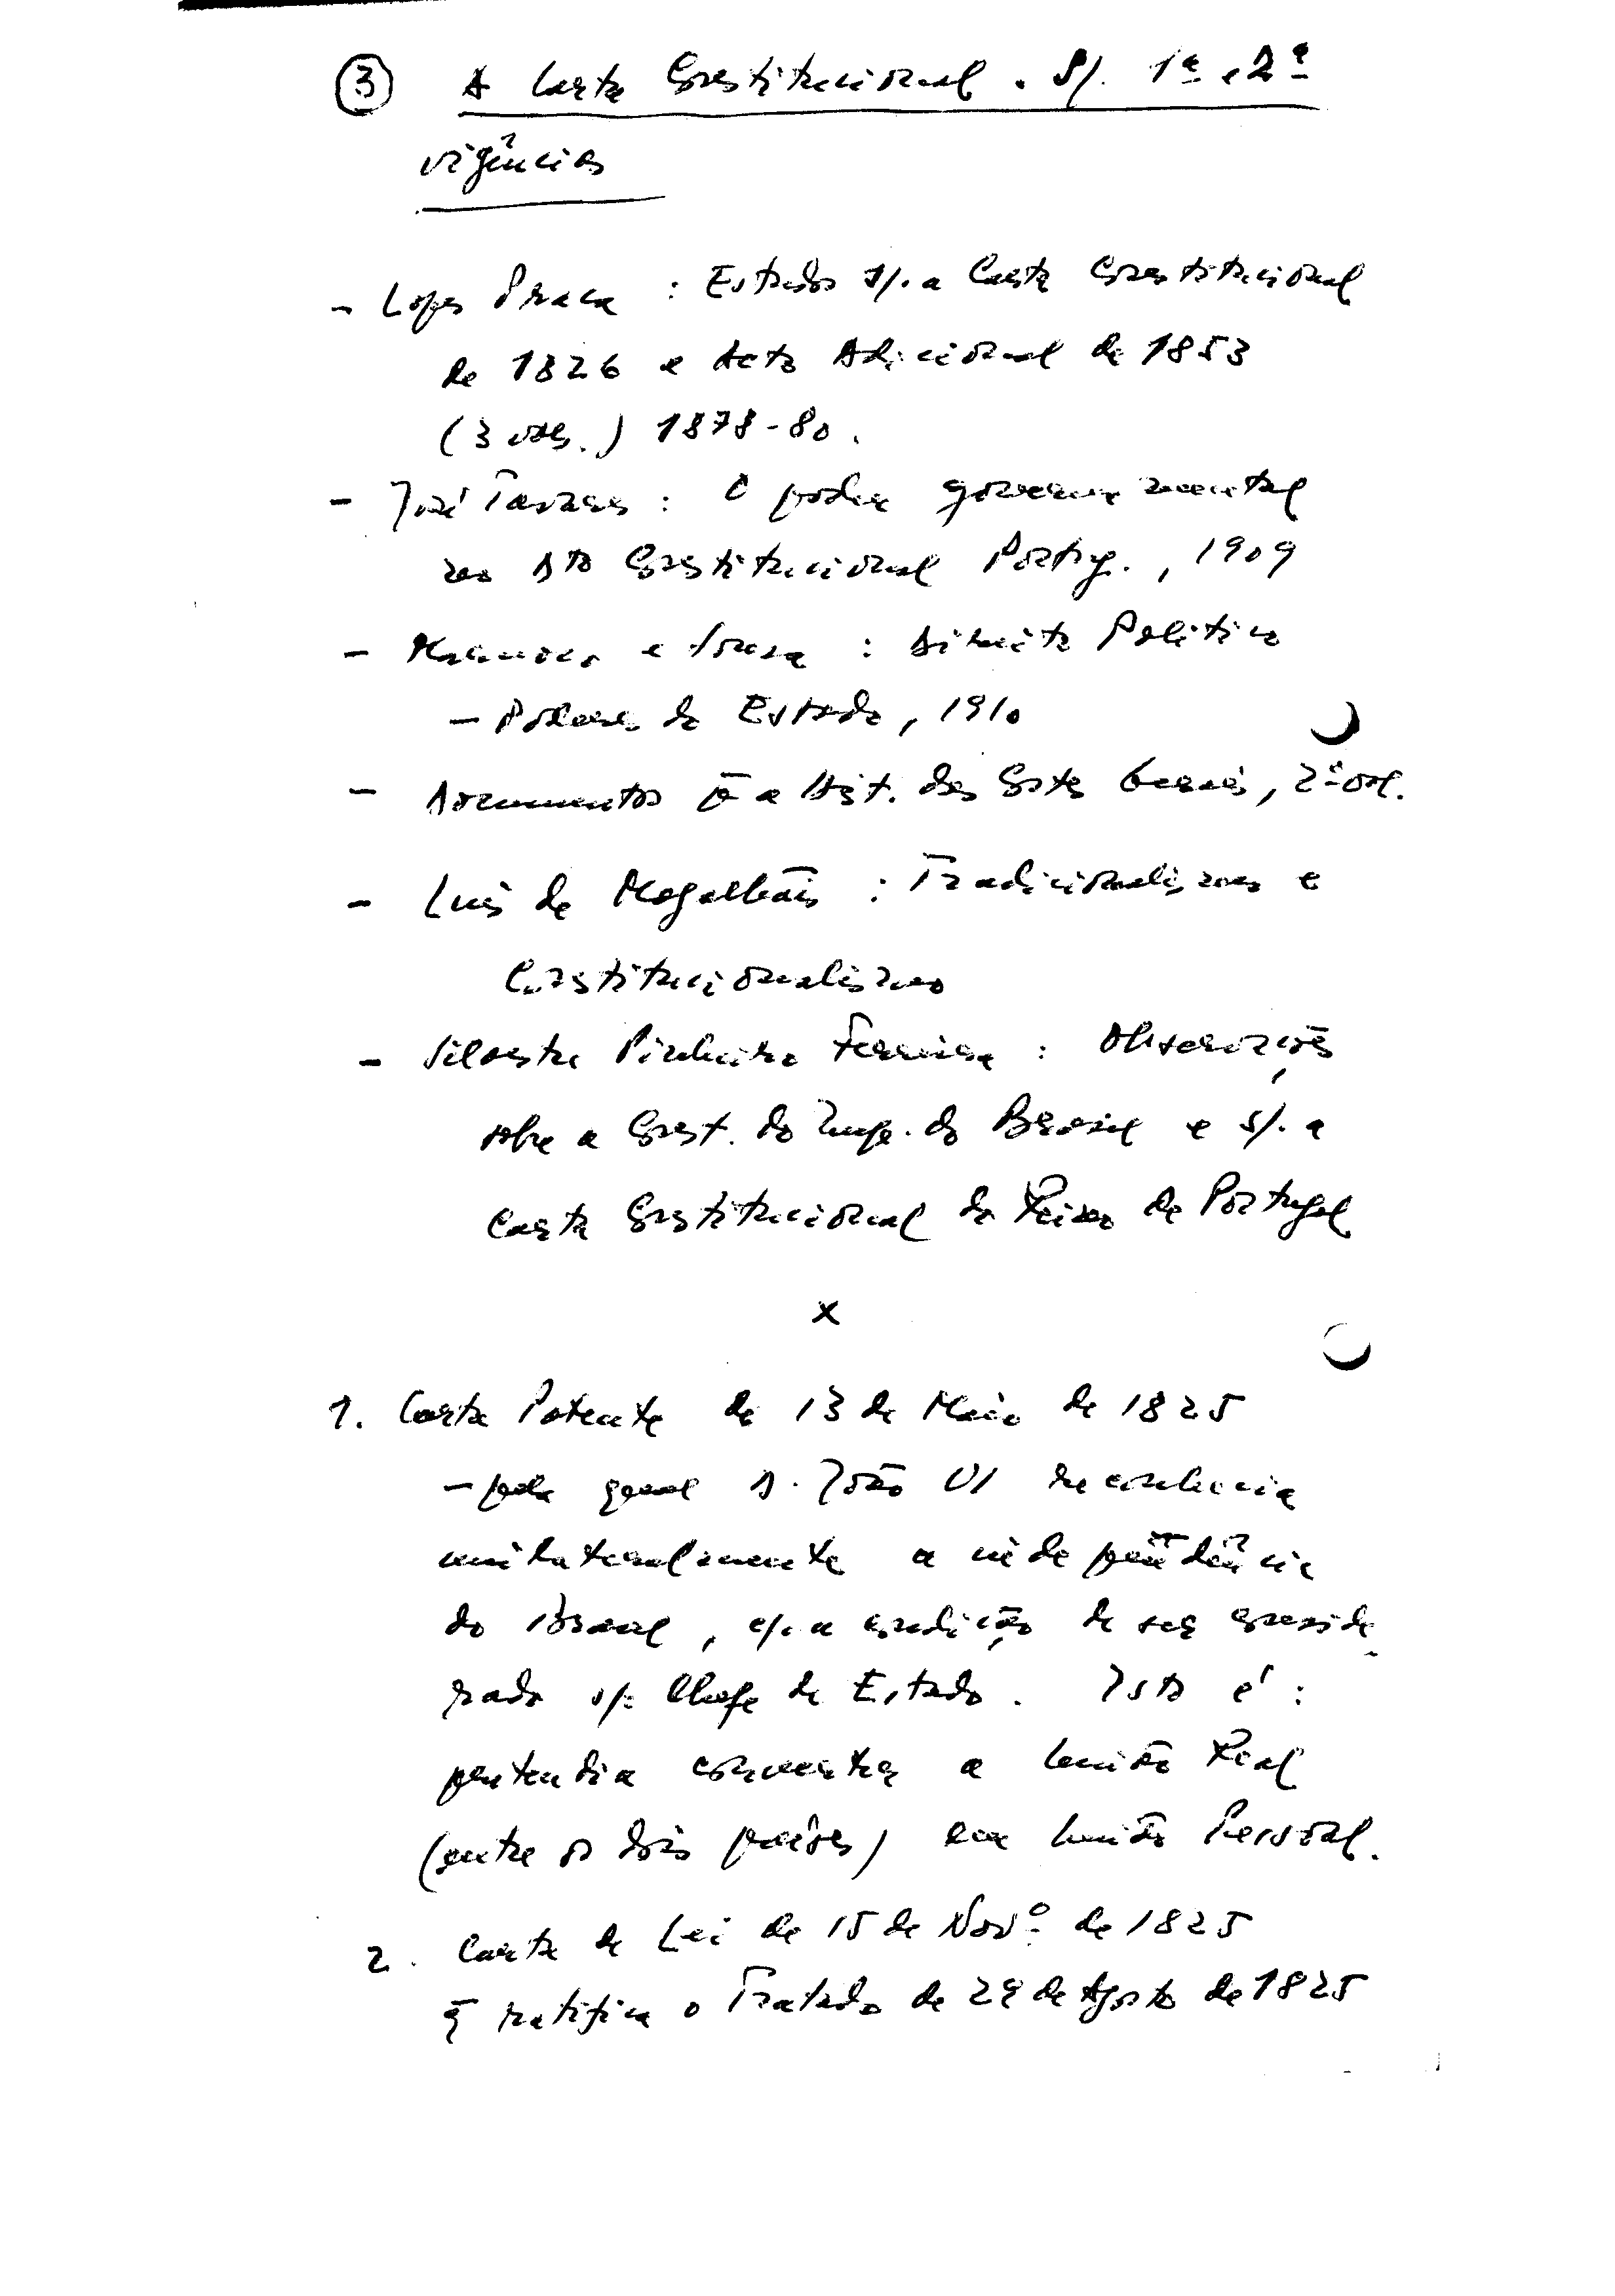 ③ A Carta Constitucional. S/. 1ª e 2ª
vigências
- Lopes Praça : Estudos s/. a Carta Constitucional
de 1826 e Acto Adicional de 1853
(3 vols.) 1878-80.
- José Tavares : O poder governamental
no Dto Constitucional Portug., 1909
- Marnoco e Sousa : Direito Politico
- Poderes do Estado, 1910
- Documentos pª a Hist. das Cortes Gerais, 2º vol.
- Luís de Magalhães : Tradicionalismo e
Constitucionalismo
- Silvestre Pinheiro Ferreira : Observações
sobre a Const. do Imp. do Brasil e s/. a
Carta Constitucional do Reino de Portugal
x
1. Carta Patente de 13 de Maio de 1825
- pela qual D. João VI reconhecia
unilateralmente a independência
do Brasil, c/. a condição de ser conside
rado s/. Chefe de Estado. Isto é :
pretendia converter a União Real
(entre os dois países) em União Pessoal.
2. Carta de Lei de 15 de Novº de 1825
q̄ ratifica o Tratado de 29 de Agosto de 1825